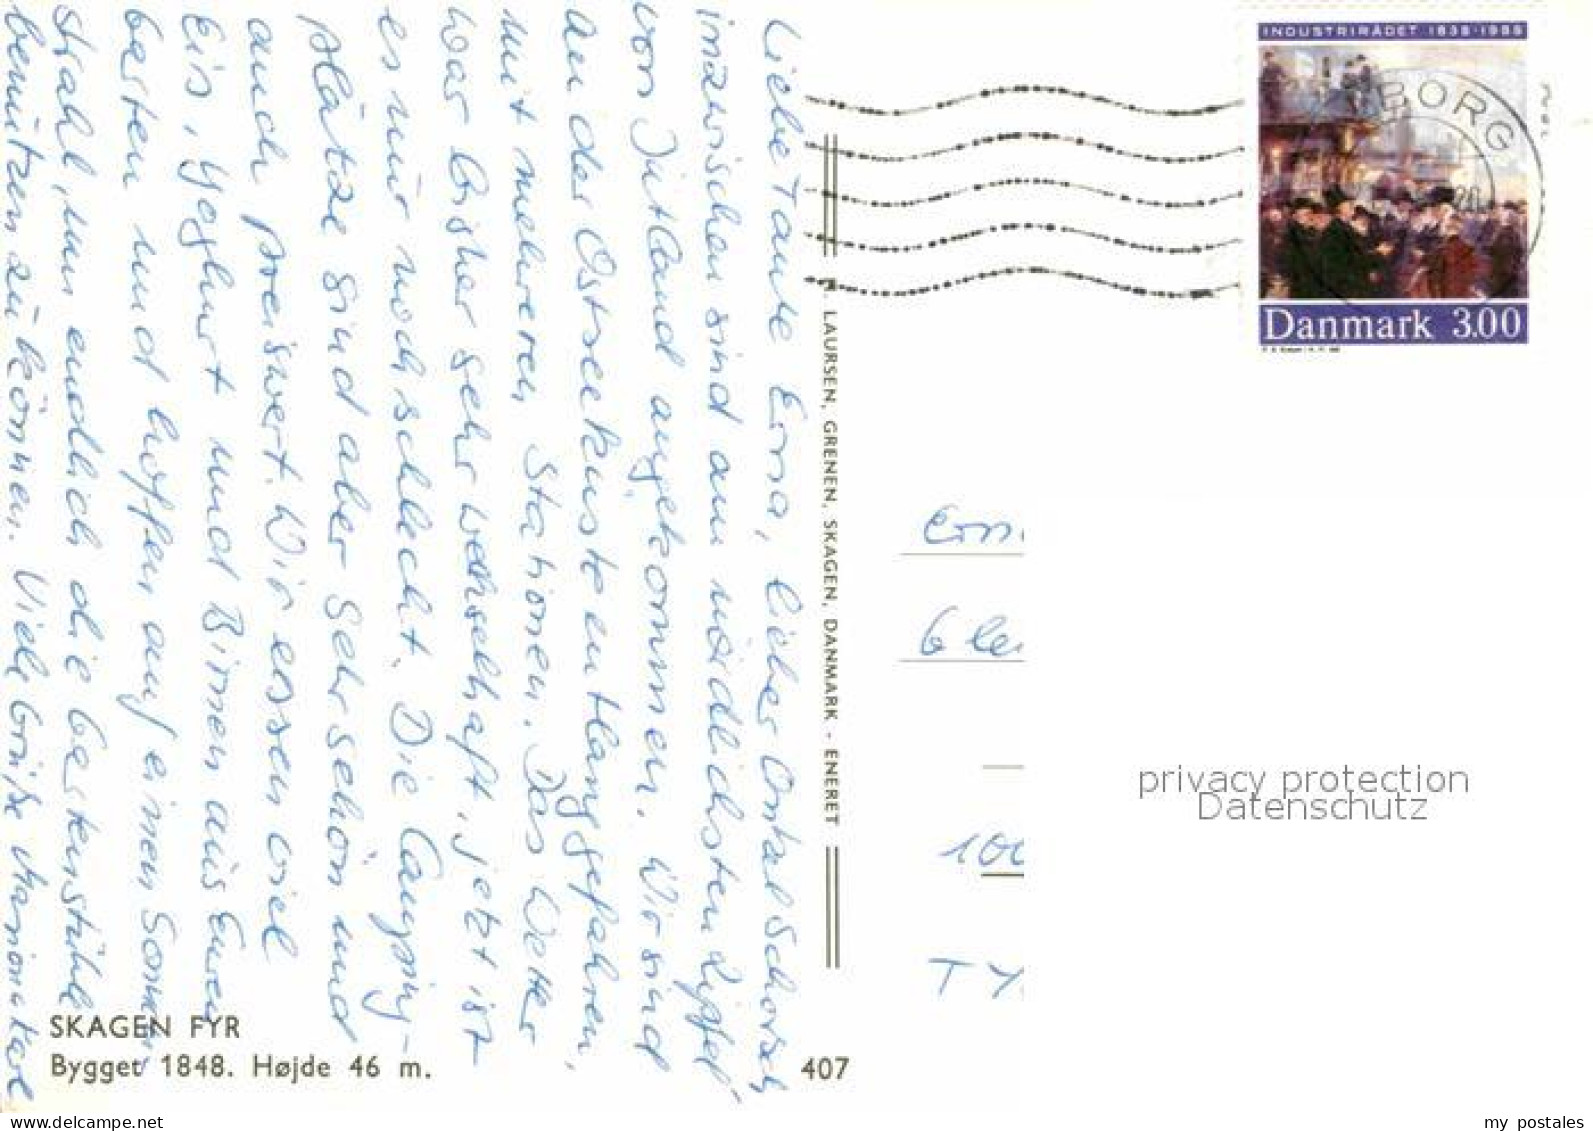 Liebe Tante Erna, lieber Onkel Schorsch
inzwischen sind am nördlichsten Zipfel
von Jütland angekommen. Wir sind
an der Ostseeküste entlanggefahren,
mit mehreren Stationen. Das Wetter
war bisher sehr wechselhaft, jetzt ist
es nur noch schlecht. Die Camping-
plätze sind aber sehr schön und
auch preiswert. Wir essen viel
Eis, Yoghurt und Birnen aus Euren
Garten und hoffen auf einen Sonnen-
strahl, um endlich die
benützen zu können. Viele Grüße
SKAGEN FYR
Bygget 1848. Højde 46 m.
407
LAURSEN, GRENEN, SKAGEN, DANMARK - ENERET
INDUSTRIRÅDET 1838·1988
BORG
Danmark 3.00
Ern
Gle
100
TY
privacy protection
Datenschutz
delcampe.net
my_postales